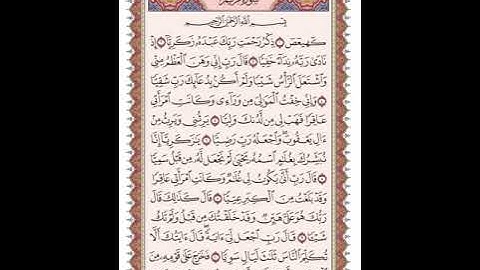 سورة مريم
بسم الله الرحمن الرحيم
كهيعص ۝ ذكر رحمت ربك عبده زكريا ۝ إذ
نادى ربه نداء خفيا ۝ قال رب إني وهن العظم مني
واشتعل الرأس شيبا ولم أكن بدعائك رب شقيا
۝ وإني خفت الموالي من وراءي وكانت امرأتي
عاقرا فهب لي من لدنك وليا ۝ يرثني ويرث من
ءال يعقوب واجعله رب رضيا ۝ يزكريا إنا
نبشرك بغلم اسمه يحيى لم نجعل له من قبل سميا
۝ قال رب أنى يكون لي غلم وكانت امرأتي عاقرا
وقد بلغت من الكبر عتيا ۝ قال كذلك قال
ربك هو علي هين وقد خلقتك من قبل ولم تك
شيئا ۝ قال رب اجعل لي ءاية قال ءايتك ألا
تكلم الناس ثلث ليال سويا ۝ فخرج على قومه من